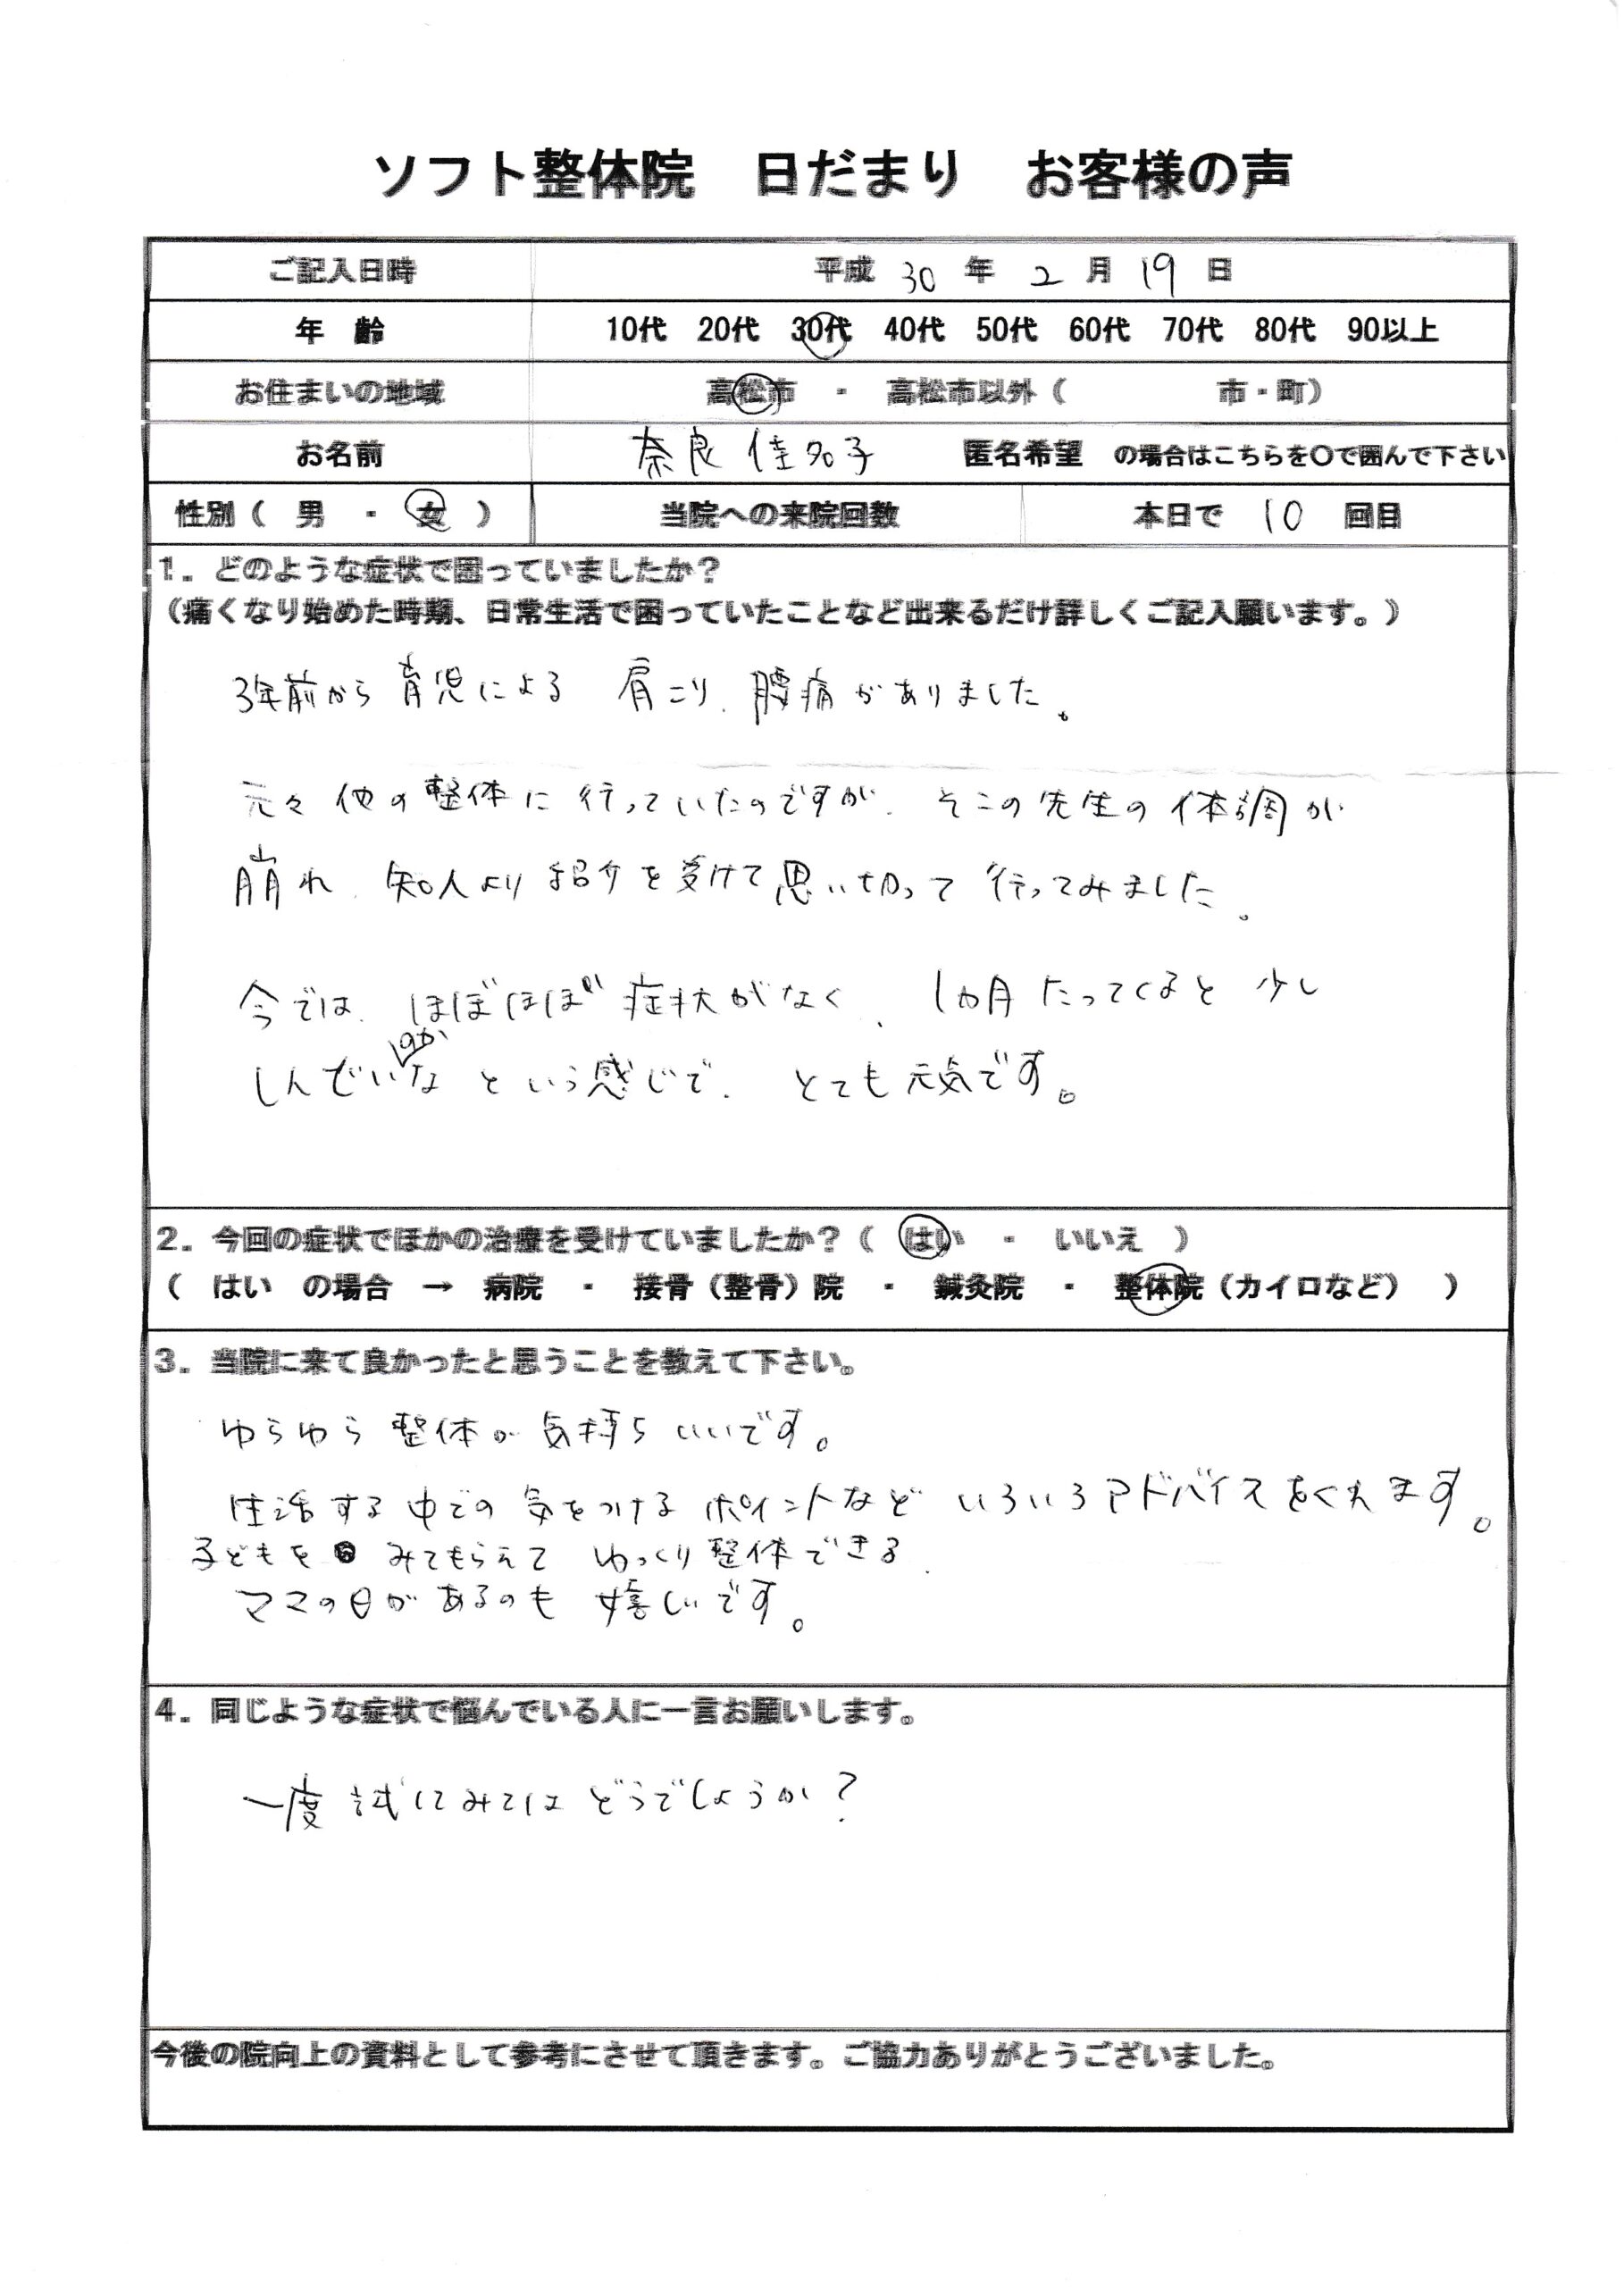 ソフト整体院　日だまり　お客様の声
ご記入日時　平成 30 年 2 月 19 日
年　齢　10代　20代　30代　40代　50代　60代　70代　80代　90以上
お住まいの地域　高松市　・　高松市以外（　　　　　市・町）
お名前　奈良 佳名子　匿名希望　の場合はこちらを〇で囲んで下さい
性別（　男　・　女　）　当院への来院回数　本日で　10　回目
1．どのような症状で困っていましたか？
（痛くなり始めた時期、日常生活で困っていたことなど出来るだけ詳しくご記入願います。）
3年前から育児による 肩こり、腰痛がありました。
元々 他の整体に行っていたのですが、そこの先生の体調が
崩れ、知人より紹介を受けて思い切って行ってみました。
今では、ほぼほぼ症状がなく、1ヵ月たってくると少し
しんどいのかなという感じで、とても元気です。
2．今回の症状でほかの治療を受けていましたか？（　はい　・　いいえ　）
（　はい　の場合　→　病院　・　接骨（整骨）院　・　鍼灸院　・　整体院（カイロなど）　）
3．当院に来て良かったと思うことを教えて下さい。
ゆらゆら整体が気持ちいいです。
生活する中での気をつけるポイントなどいろいろアドバイスをくれます。
子どもをみてもらえてゆっくり整体できる
ママの日があるのも嬉しいです。
4．同じような症状で悩んでいる人に一言お願いします。
一度試してみてはどうでしょうか？
今後の院向上の資料として参考にさせて頂きます。ご協力ありがとうございました。